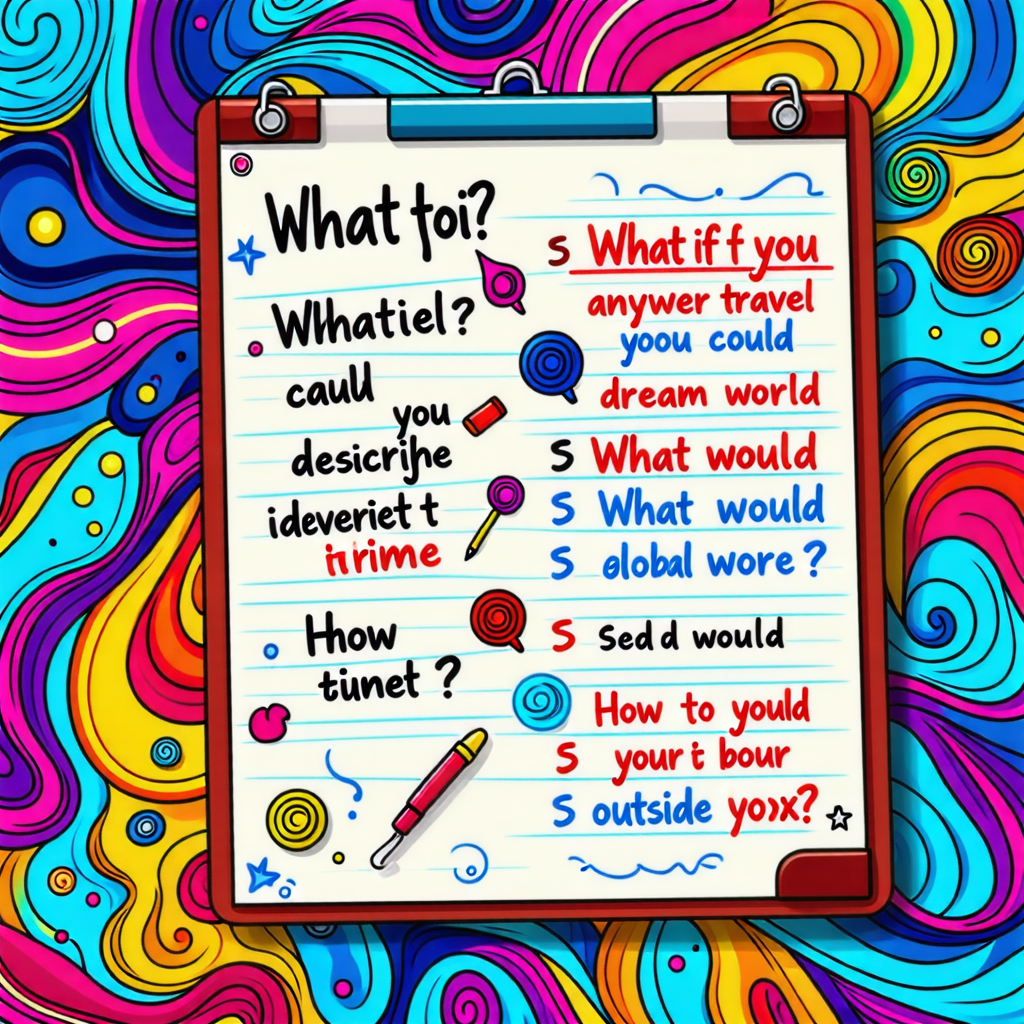 What foi?
Whatiel?
caull
you
desicrijhe
ideveriet t
irime
Hhow
tiunet ?
S What if f you
anywer travel
yoou could
dream world
S What would
S What would
S olobal wore ?
S sed d would
How to yould
S your t bour
S outside yoxx?